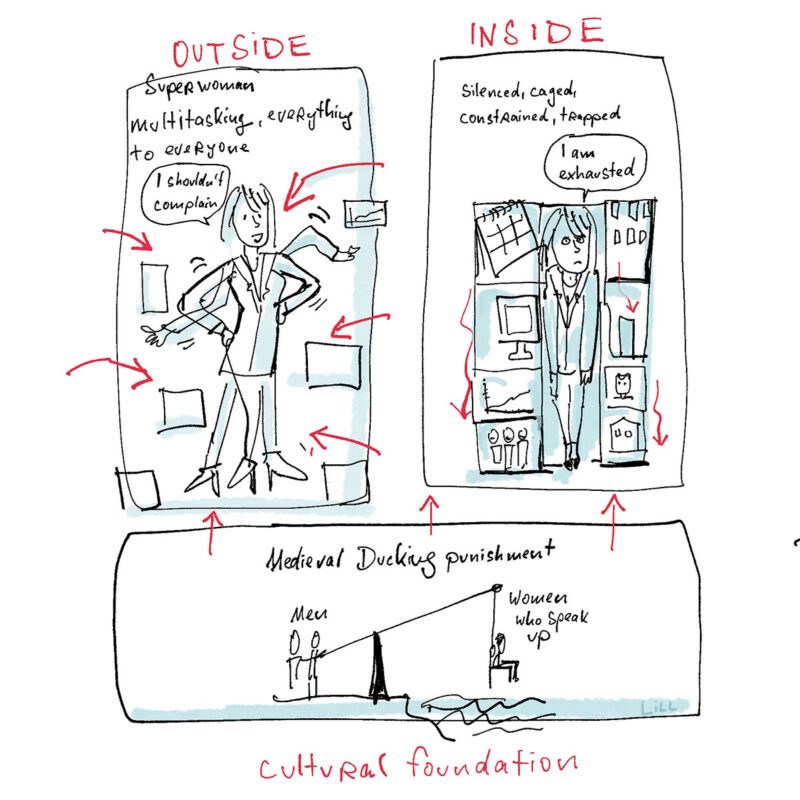 OUTSIDE
Superwoman
multitasking, everything
to everyone
I shouldn't
complain
INSIDE
Silenced, caged,
constrained, trapped
I am
exhausted
Medieval Ducking punishment
Men
Women
who speak
up
LiLL
cultural foundation